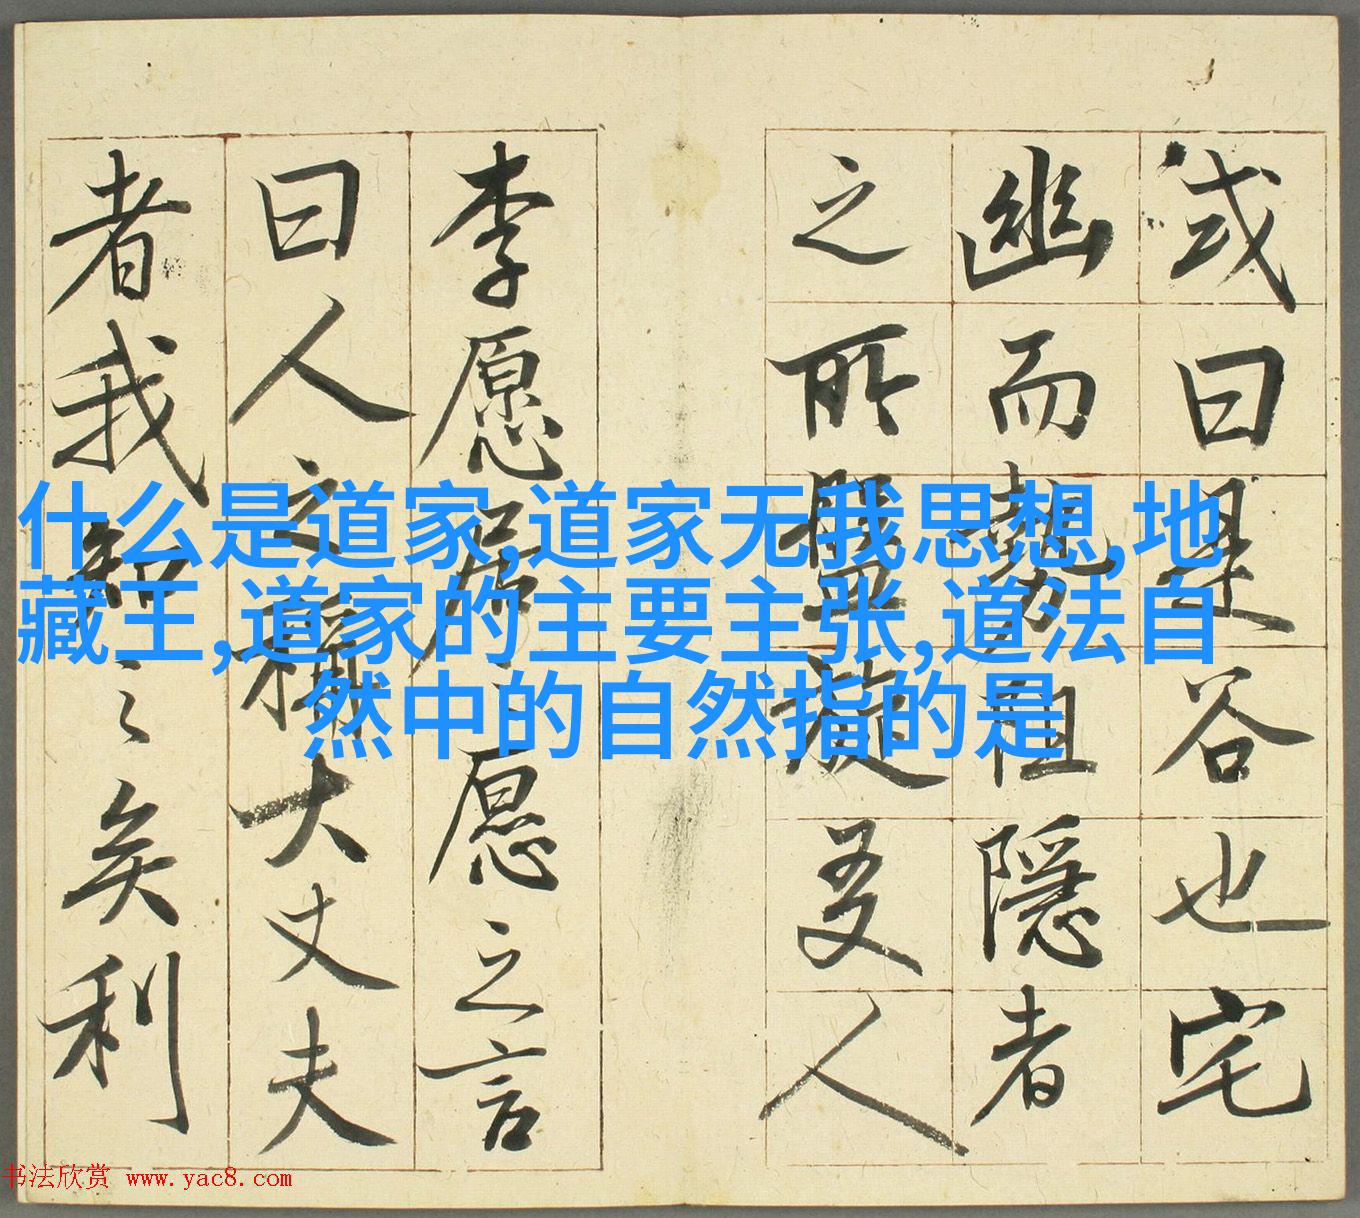 或曰是谷也宅
幽而勢阻隱者
之所盤旋友人
李愿居之愿之言
曰人之稱大丈夫
者我知之矣利
什么是道家,道家无我思想,地
藏王,道家的主要主张,道法自
然中的自然指的是
书法欣赏 www.yac8.com